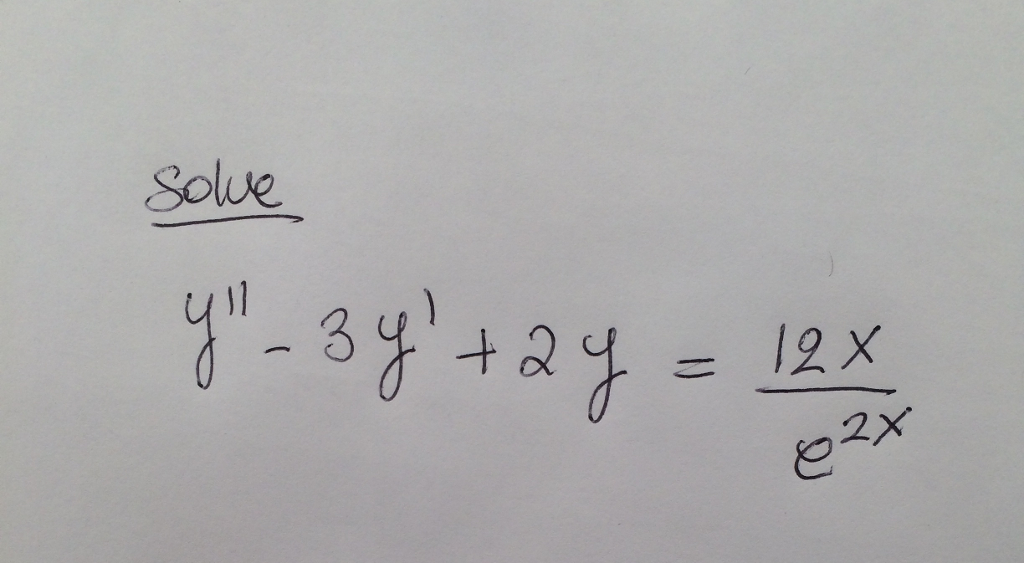 Solve
y'' - 3y' + 2y = 12x / e^{2x}